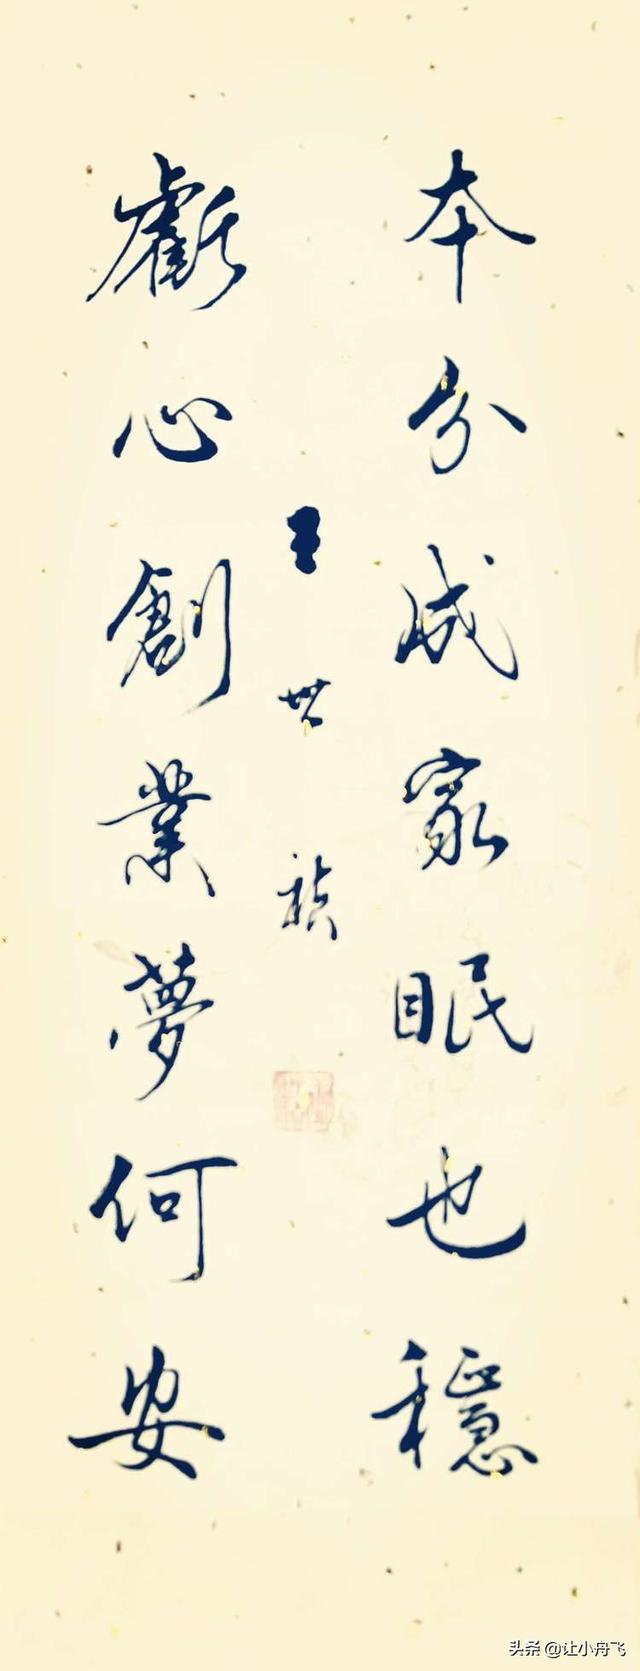 本分成家眠也穩
虧心創業夢何安
王世禎
头条 @让小舟飞